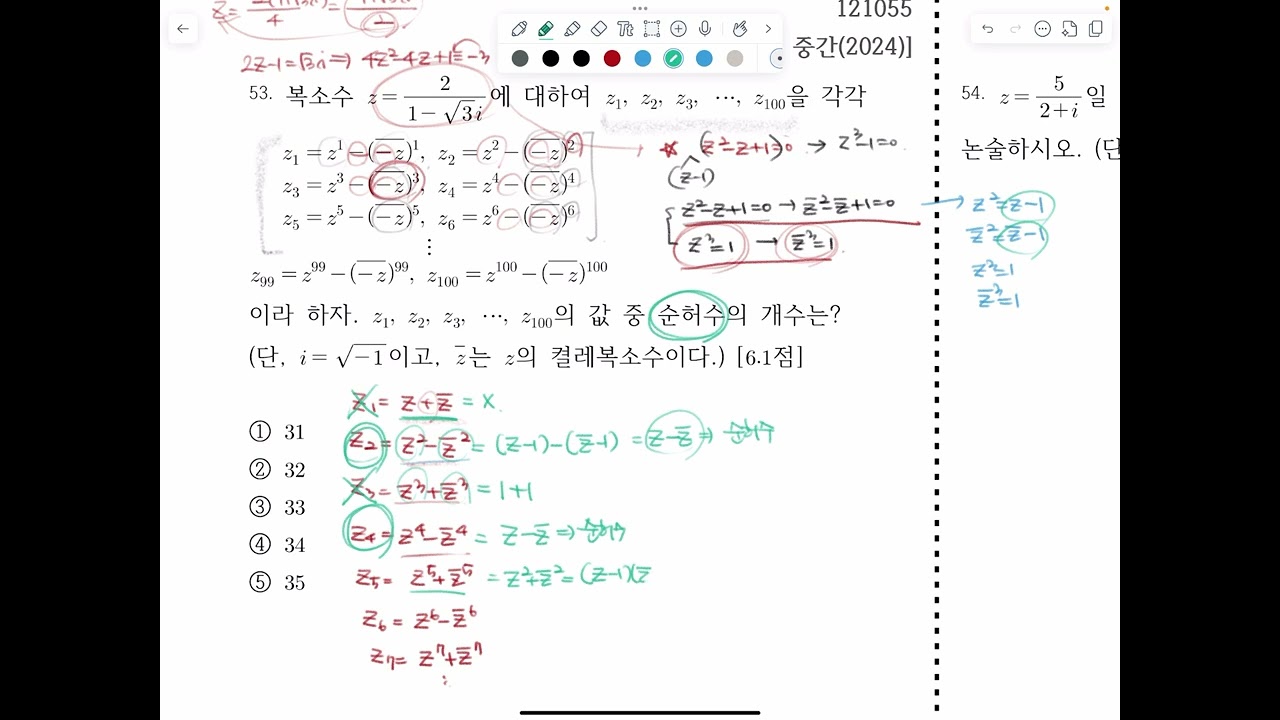 121055
중간(2024)]
2z-1=√3i ⇒ 4z²-4z+1=-3
53. 복소수 z = 2/(1-√3i)에 대하여 z₁, z₂, z₃, ⋯, z₁₀₀을 각각
z₁ = z¹-(‾-z‾)¹, z₂ = z²-(‾-z‾)²
z₃ = z³-(‾-z‾)³, z₄ = z⁴-(‾-z‾)⁴
z₅ = z⁵-(‾-z‾)⁵, z₆ = z⁶-(‾-z‾)⁶
⋮
z₉₉ = z⁹⁹-(‾-z‾)⁹⁹, z₁₀₀ = z¹⁰⁰-(‾-z‾)¹⁰⁰
이라 하자. z₁, z₂, z₃, ⋯, z₁₀₀의 값 중 순허수의 개수는?
(단, i = √-1이고, z̄는 z의 켤레복소수이다.) [6.1점]
① 31
② 32
③ 33
④ 34
⑤ 35
(z²-z+1)=0 → z³-1=0.
(z-1)
z²-z+1=0 → z̄²-z̄+1=0
z³=1 → z̄³=1.
z²=z-1
z̄²=z̄-1
z³=1
z̄³=1
z₁= z+z̄ = X.
z₂= z²-z̄² = (z-1)-(z̄-1) = z-z̄ ⇒ 순허수
z₃= z³+z̄³ = 1+1
z₄= z⁴-z̄⁴ = z-z̄ ⇒ 순허수
z₅= z⁵+z̄⁵ = z²+z̄² = (z-1)(z̄
z₆ = z⁶-z̄⁶
z₇= z⁷+z̄⁷
54. z = 5/(2+i)일
논술하시오. (단